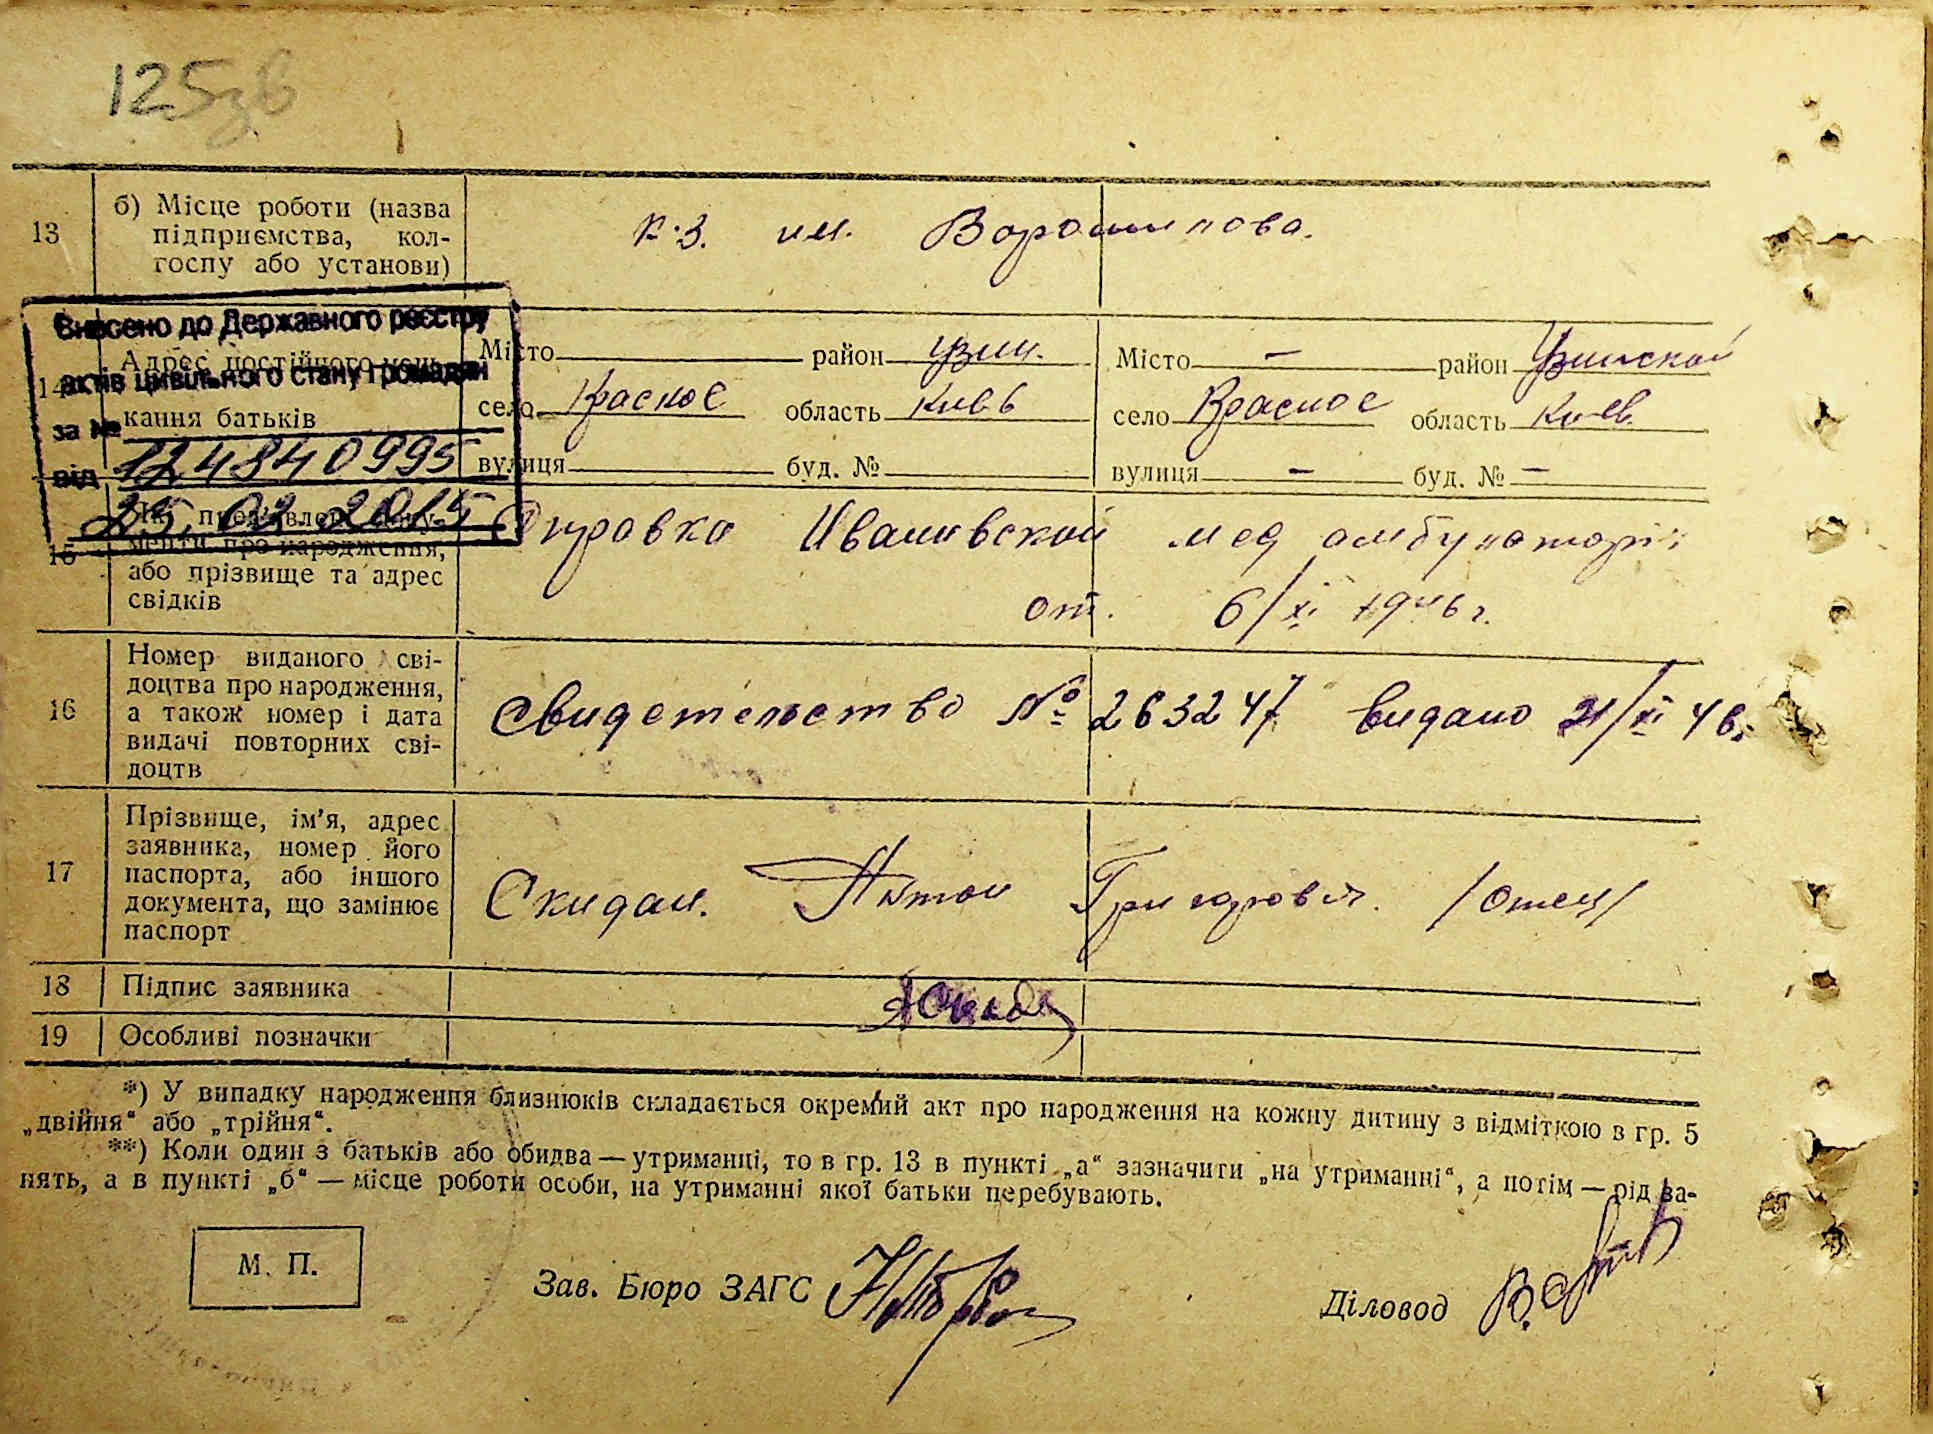 125зв
13 б) Місце роботи (назва
підприємства, кол-
госпу або установи)
к.з. им. Ворошилова.
Внесено до Державного реєстру
актів цивільного стану громадян
за № 124840995
від 25.02.2015
14 Адрес постійного меш-
кання батьків
Місто район Узин.
село Красное область Киев
вулиця буд. №
Місто – район Узинской
село Красное область Киев.
вулиця – буд. № –
15 Які пред'явлені доку-
менти про народження,
або прізвище та адрес
свідків
Справка Ивановской мед амбулаторії
от. 6/XI 1946 г.
16 Номер виданого сві-
доцтва про народження,
а також номер і дата
видачі повторних сві-
доцтв
Свидетельство № 263247 видано 21/XI 46.
17 Прізвище, ім'я, адрес
заявника, номер його
паспорта, або іншого
документа, що замінює
паспорт
Скидан. Антон Григорович. /отец/
18 Підпис заявника
19 Особливі позначки
*) У випадку народження близнюків складається окремий акт про народження на кожну дитину з відміткою в гр. 5
„двійня“ або „трійня“.
**) Коли один з батьків або обидва — утриманці, то в гр. 13 в пункті „а“ зазначити „на утриманні“, а потім — рід за-
нять, а в пункті „б“ — місце роботи особи, на утриманні якої батьки перебувають.
М. П.
Зав. Бюро ЗАГС
Діловод